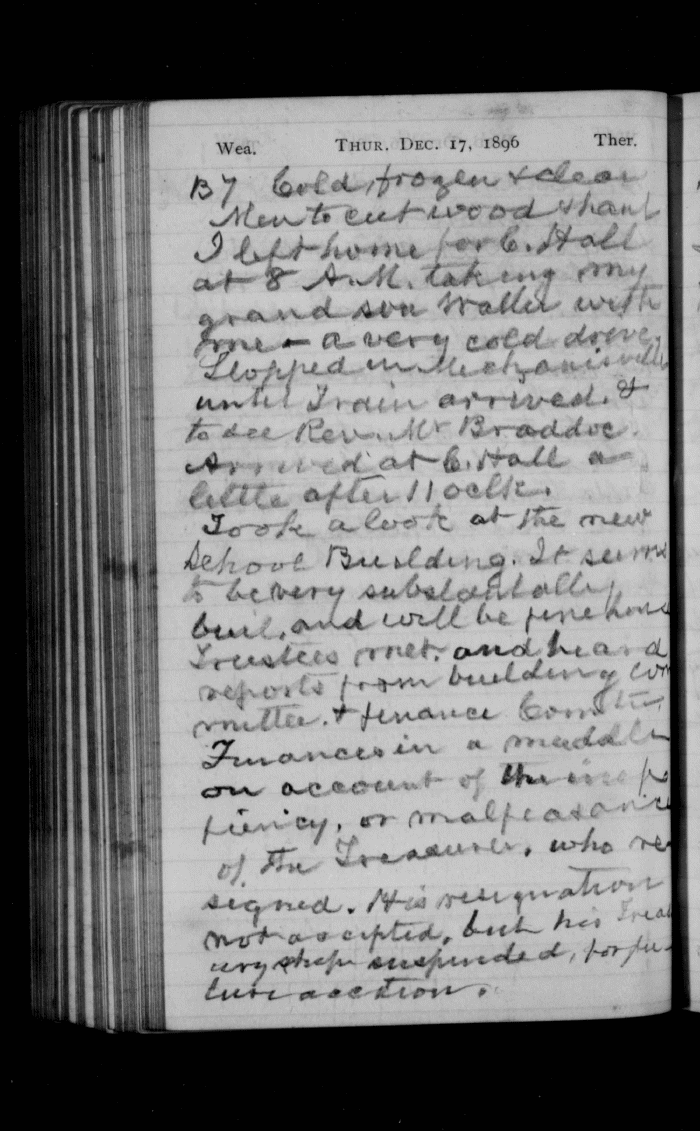 Wea. THUR. DEC. 17, 1896 Ther.
B 7 Cold, frozen & clear
Men to cut wood & haul
I left home for C. Hall
at 8 A.M. taking my
grand son Walter with
me - a very cold drive,
Stopped in Mechanicsville
until Train arrived. &
to see Rev. Mr Braddoc.
Arrived at C. Hall a
little after 11 oclk.
Took a look at the new
School Building. It seems
to be very substantially
buil, and will be fine hous
Trustees met, and heard
reports from building com
mittee. & finance Comtte,
Finances in a muddle
on account of the
ficincy, or malfeasance
of the Treasurer, who re
signed. His resignation
not accepted, but his Treas
uryship suspended, for fu-
ture acction.